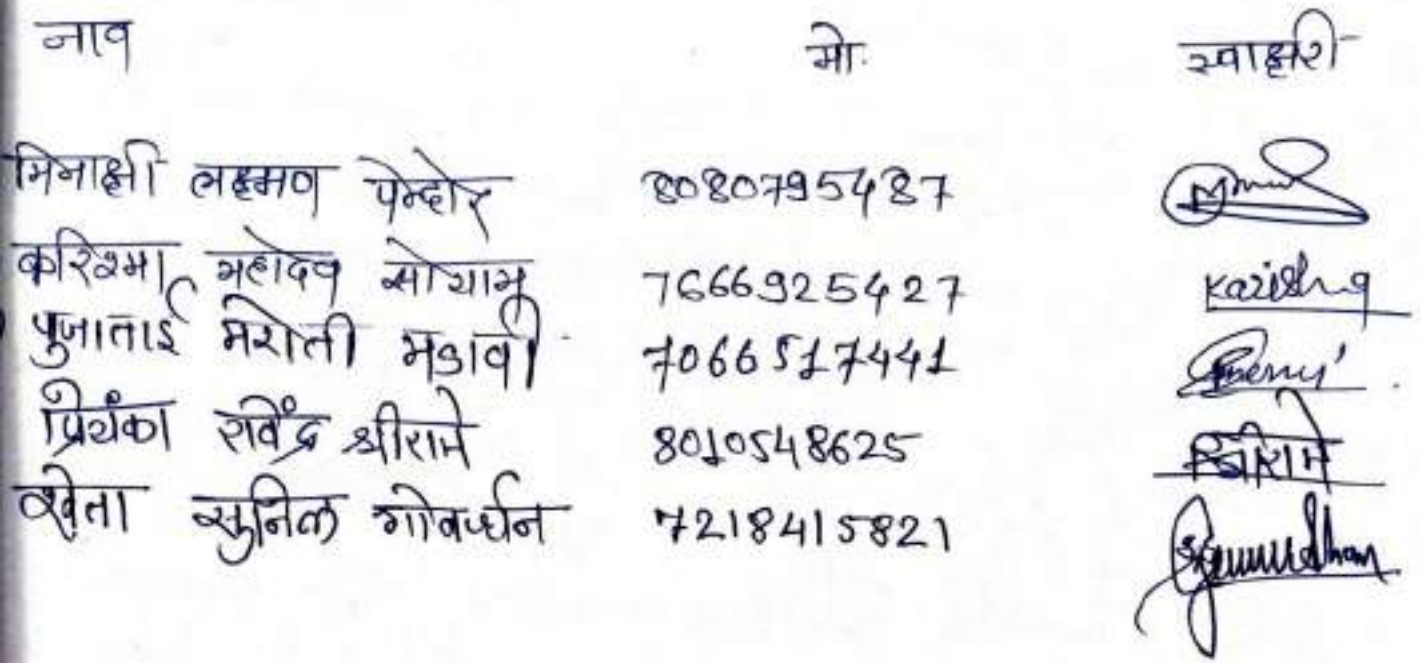 नाव मो. स्वाक्षरी
मिनाक्षी लक्ष्मण पेन्दोर 8080795487
करिश्मा महादेव सोयाम 7666925427 Karishma
पुजाताई मरोती मडावी 7066517441
प्रियंका रविंद्र श्रीरामे 8010548625 श्रीरामे
श्वेता सुनिल गोवर्धन 7218415821